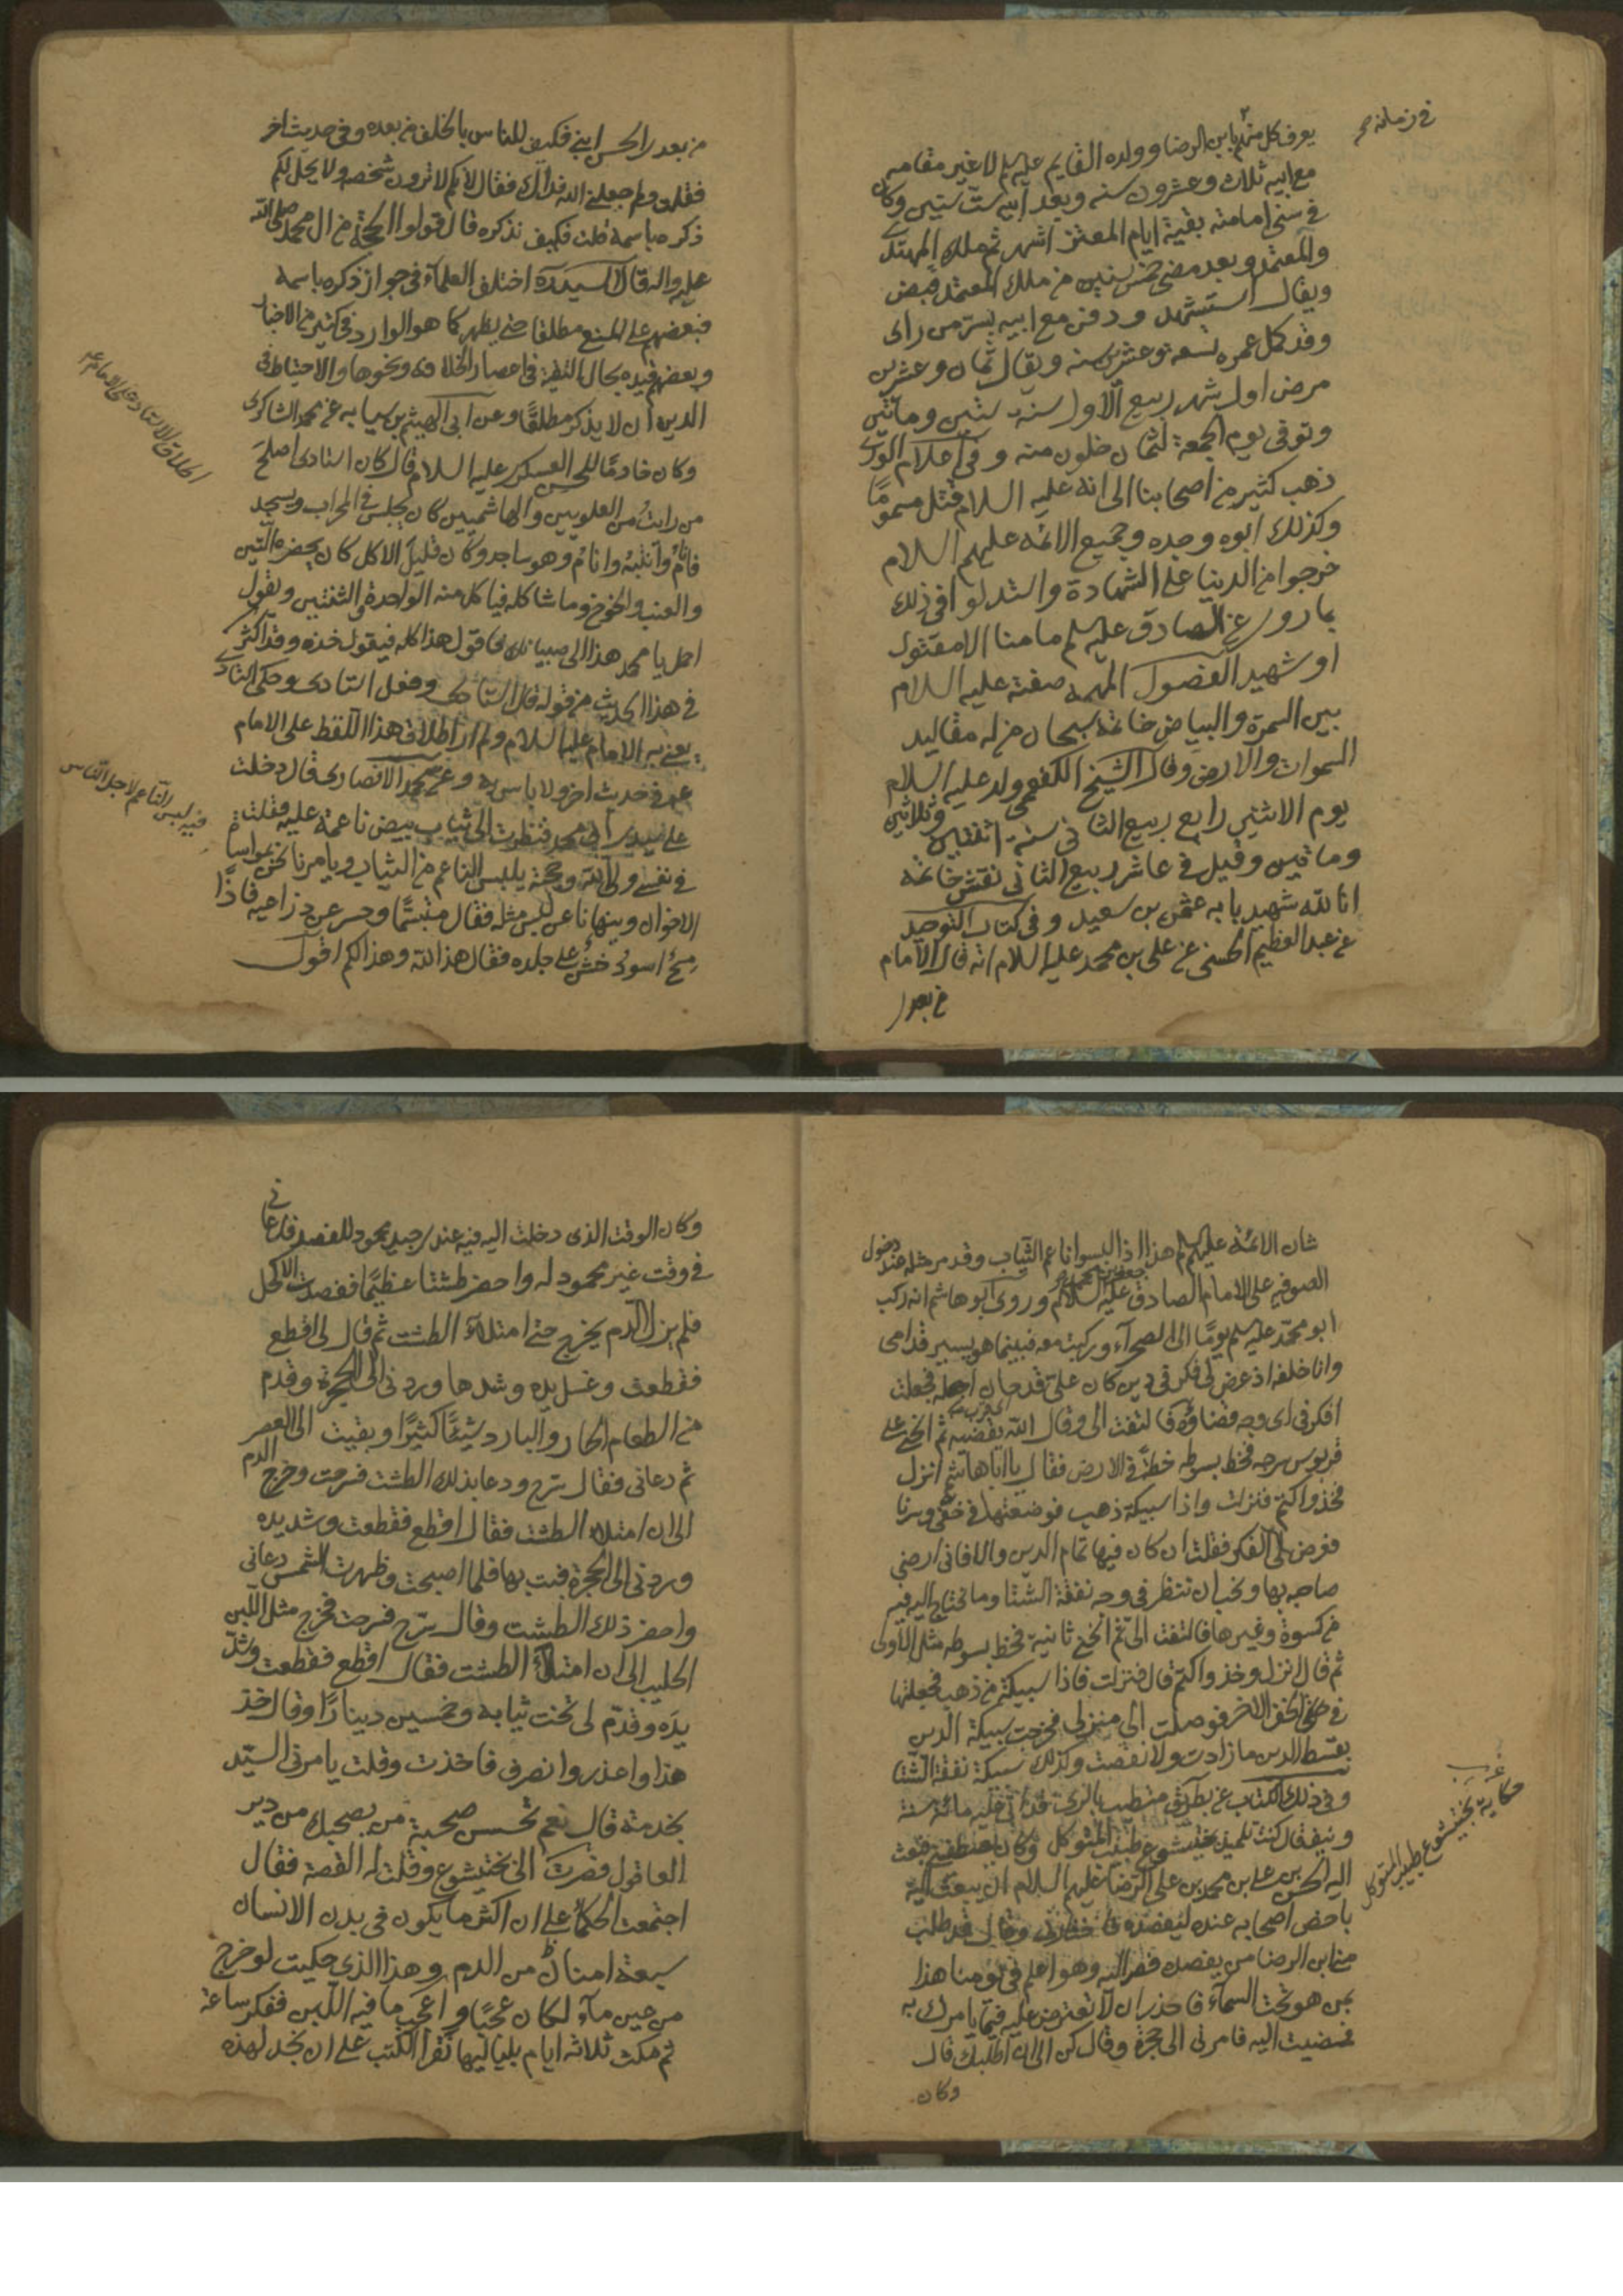 في زمانه صح
يعرف كل منهم بابن الرضا وولده القايم عليهم لا غير مقامه
مع ابيه ثلاث وعشرون سنه وبعد ابيه ست سنين وكان
في سني امامته بقية ايام المعتز اشهر ثم ملك المهتدي
والمعتمد وبعد مضي خمس سنين من ملك المعتمد قبض
ويقال استشهد ودفن مع ابيه بسر من راى
وقد كمل عمره تسعة وعشرين سنه ويقال ثمان وعشرين
مرض اول شهر ربيع الاول سنة ستين ومأتين
وتوفى يوم الجمعة لثمان خلون منه وفي اعلام الورى
ذهب كثير من اصحابنا الى انه عليه السلام قتل مسموما
وكذلك ابوه وجده وجميع الائمه عليهم السلام
خرجوا من الدنيا على الشهادة واستدلوا في ذلك
بما روي عن الصادق عليه السلم ما منا الا مقتول
او شهيد الفصول المهمه صفته عليه السلام
بين السمرة والبياض خاتمه سبحان من له مقاليد
السموات والارض وقال الشيخ الكفعمي ولد عليه السلام
يوم الاثنين رابع ربيع الثاني سنة اثنتين وثلاثين
ومأتين وقيل في عاشر ربيع الثاني نقش خاتمه
انا لله شهيد بابه عثمن بن سعيد وفي كتاب التوحيد
عن عبد العظيم الحسني عن علي بن محمد عليه السلام انه قال الامام
من بعدي
من بعدي الحسن ابني فكيف للناس بالخلف من بعده وفي حديث اخر
فقلت ولم جعلني الله فداك فقال لانكم لا ترون شخصه ولا يحل لكم
ذكره باسمه قلت فكيف نذكره قال قولوا الحجة من ال محمد صلى الله
عليه واله قال السيد ره اختلف العلمآء في جواز ذكره باسمه
فبعضهم على المنع مطلقا حتى يظهر كما هو الوارد في كثير من الاخبار
وبعضهم قيده بحال التقية في اعصار الخلافة ونحوها والاحتياط في
الدين ان لا يذكر مطلقا وعن ابي الهيثم بن سيابه عن محمد الشاكري
وكان خادما للحسن العسكري عليه السلام قال كان استادي اصلح
من رايت من العلويين والهاشميين كان يجلس في المحراب ويسجد
فانام وانتبه وانام وهو ساجد وكان قليل الاكل كان يحضره التين
والعنب والخوخ وما شاكله فياكل منه الواحدة والثنتين ويقول
احمل يا محمد هذا الى صبيانك فاقول هذا كله فيقول خذه وقد اكثر
في هذا الحديث من قوله قال استادي وفعل استادي وحكى استادي
يعني به الامام عليه السلام ولم ار اطلاق هذا اللفظ على الامام
عم في حديث اخر ولا باس به وعن محمد الانصاري قال دخلت
على سيدي ابي محمد فنظرت الى ثياب بيض ناعمة عليه فقلت
في نفسي ولي الله وحجته يلبس الناعم من الثياب ويامرنا نحن بمواساة
الاخوان وينهانا عن لبس مثله فقال متبسما وحسر عن ذراعيه فاذا
مسح اسود خشن على جلده فقال هذا لله وهذا لكم اقول
اطلاق الاستاد على الامام عم
فيه لبس الناعم لاجل الناس
شان الائمة عليهم هذا اذا لبسوا ناعم الثياب وقد مر مثله عند دخول
الصوفيه على الامام الصادق عليه السلام وروى ابو هاشم انه ركب
جعفر بن محمد صح
ابو محمد عليه السلم يوما الى الصحرآء وركبت معه فبينما هو يسير قدامي
وانا خلفه اذ عرض لي فكر في دين كان علي قد حان اجله فجعلت
افكر في اي وجه قضاؤه فالتفت الي وقال الله يقضيه ثم انحنى على
قربوس سرجه فخط بسوطه خطة في الارض فقال يا ابا هاشم انزل
فخذ واكتم فنزلت واذا سبيكة ذهب فوضعتها في خفي وسرنا
فعرض لي الفكر فقلت ان كان فيها تمام الدين والا فاني ارضي
صاحبه بها ونحب ان ننظر في وجه نفقة الشتا وما نحتاج اليه فيه
من كسوة وغيرها فالتفت الي ثم انحنى ثانية فخط بسوطه مثل الاولى
ثم قال انزل وخذ واكتم قال فنزلت فاذا سبيكة من ذهب فجعلتها
في خفي الاخر فوصلت الى منزلي فخرجت سبيكة الدين
بقسط الدين ما زادت ولا نقصت وكذلك سبيكة نفقة الشتا
وفي ذلك الكتاب عن بطريق متطبب بالري قد اتى عليه مائة سنة
ونيف قال كنت تلميذ بختيشوع طبيب المتوكل وكان يصطفيني فبعث
اليه الحسن بن علي بن محمد بن علي الرضا عليهم السلام ان يبعث اليه
باخص اصحابه عنده ليفصده فاختارني وقال قد طلب
مني ابن الرضا من يفصده فصر اليه وهو اعلم في يومنا هذا
بمن هو تحت السمآء فاحذر ان لا تعترض عليه فيما يامرك به
فمضيت اليه فامرني الى حجرة وقال كن الى ان اطلبك قال
وكان
غريب
حكاية بختيشوع طبيب المتوكل
وكان الوقت الذي دخلت اليه فيه عندي جيد محمود للفصد فدعاني
في وقت غير محمود له واحضر طشتا عظيما ففصدت الاكحل
فلم يزل الدم يخرج حتى امتلأ الطشت ثم قال لي اقطع
فقطعت وغسل يده وشدها وردني الى الحجرة وقدم
من الطعام الحار والبارد شيئا كثيرا وبقيت الى العصر
ثم دعاني فقال سرح ودعا بذلك الطشت فسرحت وخرج الدم
الى ان امتلاء الطشت فقال اقطع فقطعت وشد يده
وردني الى الحجرة فبت بها فلما اصبحت وظهرت الشمس دعاني
واحضر ذلك الطشت وقال سرح فسرحت فخرج مثل اللبن
الحليب الى ان امتلأ الطشت فقال اقطع فقطعت وشد
يده وقدم لي تخت ثيابه وخمسين دينارا وقال خذ
هذا واعذر وانصرف فاخذت وقلت يامرني السيد
بخدمة قال نعم تحسن صحبة من يصحبك من دير
العاقول فصرت الى بختيشوع وقلت له القصة فقال
اجتمعت الحكمآء على ان اكثر ما يكون في بدن الانسان
سبعة امنان من الدم وهذا الذي حكيت لو خرج
من عين مآء لكان عجبا واعجب ما فيه اللبن ففكر ساعة
ثم مكث ثلاثه ايام بلياليها نقرأ الكتب على ان نجد لهذه